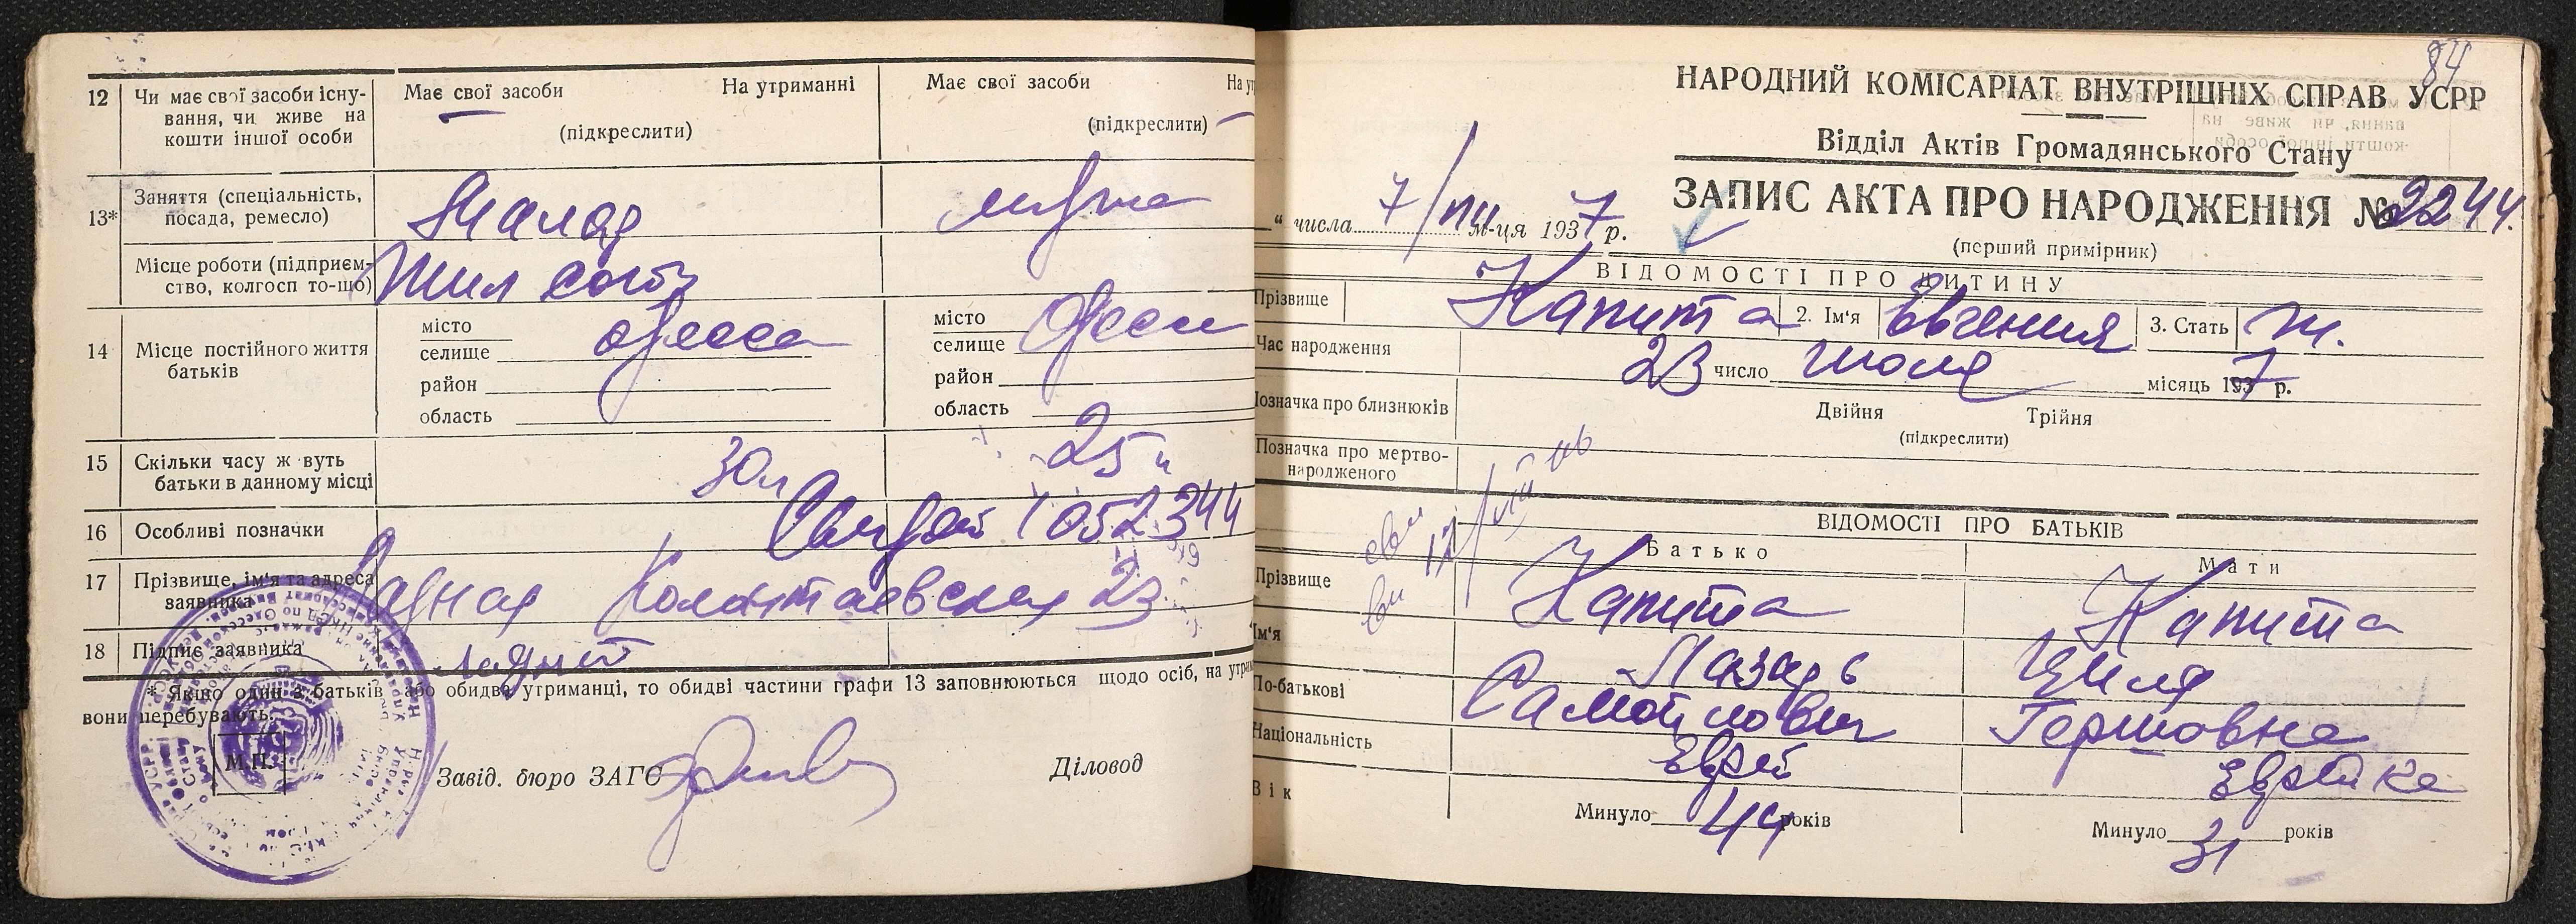 12 Чи має свої засоби існу-
вання, чи живе на
кошти іншої особи
Має свої засоби На утриманні
(підкреслити)
Має свої засоби На ут
(підкреслити)
13* Заняття (спеціальність,
посада, ремесло)
Місце роботи (підприєм-
ство, колгосп то-що)
Жил
14 Місце постійного життя
батьків
місто
селище Одесса
район
область
місто
селище Одесса
район
область
15 Скільки часу ж вуть
батьки в данному місці
30 л 25 л
16 Особливі позначки
1052344
17 Прізвище, ім'я та адреса
заявника
23
18 Підпис заявника
* Якщо один з батьків або обидва утриманці, то обидві частини графи 13 заповнюються щодо осіб, на утрим
вони перебувають.
М.П.
Завід. бюро ЗАГС Діловод
84
НАРОДНИЙ КОМІСАРІАТ ВНУТРІШНІХ СПРАВ УСРР
Відділ Актів Громадянського Стану
ЗАПИС АКТА ПРО НАРОДЖЕННЯ № 2244.
(перший примірник)
" числа 7/VIII м-ця 1937 р.
ВІДОМОСТІ ПРО ДИТИНУ
Прізвище Капита 2. Ім'я Евгения 3. Стать ж.
Час народження 23 число июля місяць 1937 р.
Позначка про близнюків Двійня Трійня
(підкреслити)
Позначка про мертво-
народженого
ВІДОМОСТІ ПРО БАТЬКІВ
Батько Мати
Прізвище Капита Капита
Ім'я Лазарь Циля
По-батькові Самойлович Гершовна
Національність Еврей Еврейка
Вік Минуло 44 років Минуло 31 років